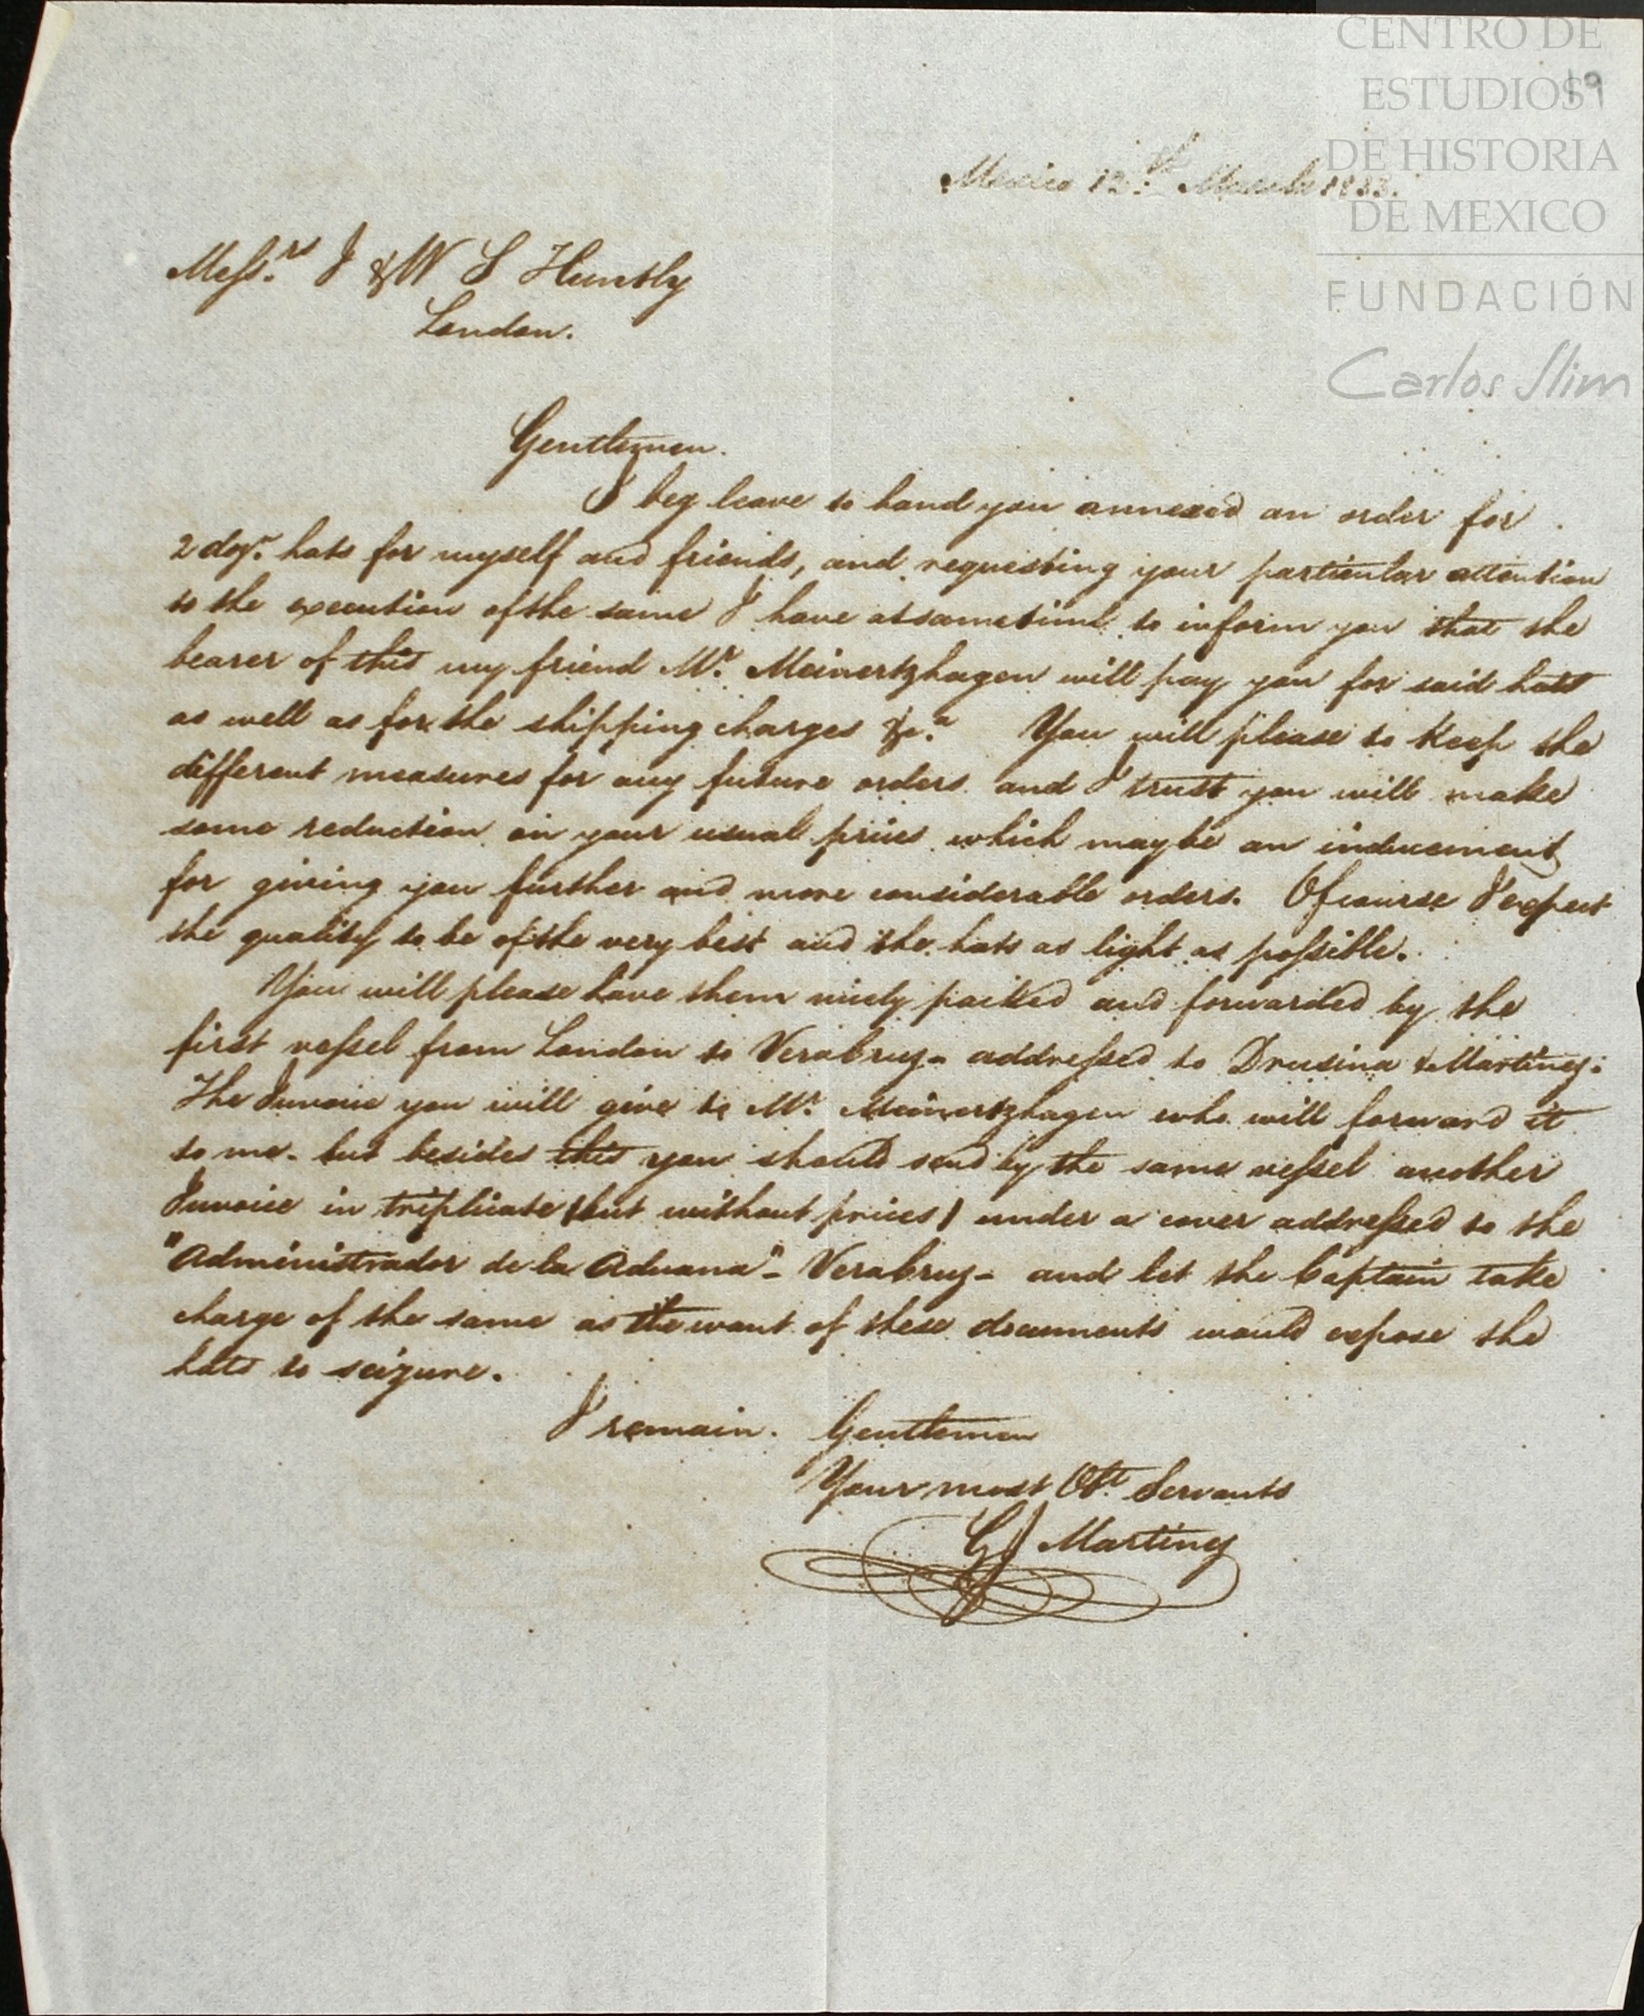 CENTRO DE
ESTUDIOS
DE HISTORIA
DE MEXICO
FUNDACIÓN
Carlos Slim
19
Mexico 12th March 1833.
Messrs. J & W S Huntly
London.
Gentlemen.
I beg leave to hand you annexed an order for
2 dozn. hats for myself and friends, and requesting your particular attention
to the execution of the same I have at sametime to inform you that the
bearer of this my friend Mr. Meinertzhagen will pay you for said hats
as well as for the shipping charges &ca. You will please to keep the
different measures for any future orders and I trust you will make
some reduction on your usual prices which maybe an inducement
for giving you further and more considerable orders. Of course I expect
the quality to be of the very best and the hats as light as possible.
You will please have them nicely packed and forwarded by the
first vessel from London to Veracruz - addressed to Drusina & Martinez.
The Invoice you will give to Mr. Meinertzhagen who will forward it
to me. but besides this you should send by the same vessel another
Invoice in triplicate (but without prices) under a cover addressed to the
"Administrador de la Aduana" - Veracruz - and let the Captain take
charge of the same as the want of these documents would expose the
hats to seizure.
I remain. Gentlemen
Your most Obt. Servants
G J Martinez